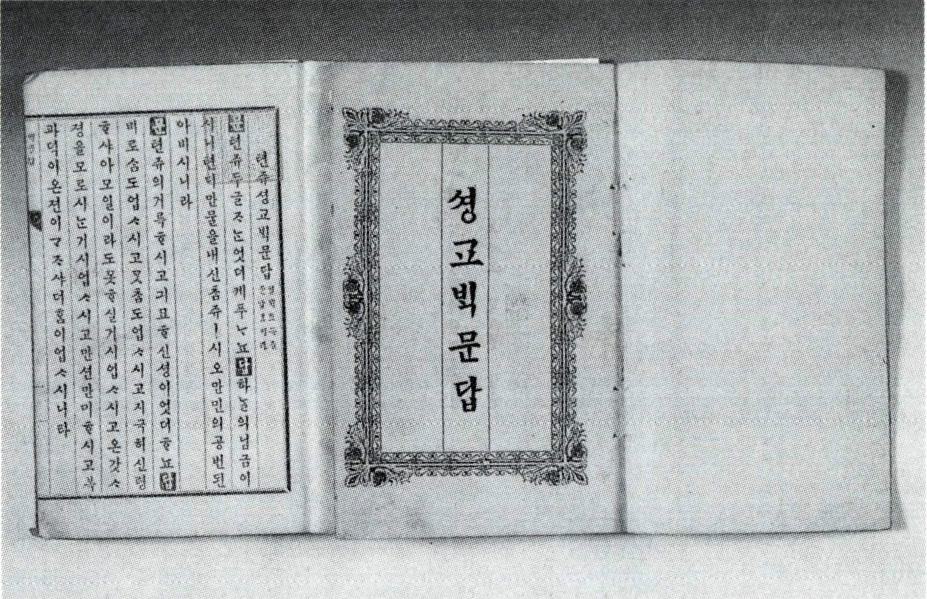 셩교ᄇᆡᆨ문답
텬쥬셩교ᄇᆡᆨ문답
문텬쥬두글ᄌᆞᄂᆞᆫ엇더케푸ᄂᆞ뇨답하ᄂᆞᆯ의님금이
시니텬디만물을내신춤쥬ㅣ시오만민의공번된
아비시니라
문텬쥬의거륵ᄒᆞ시고긔묘ᄒᆞ신셩이엇더ᄒᆞ뇨답
비로솜도업ᄉᆞ시고ᄆᆞᆺᄎᆞᆷ도업ᄉᆞ시고지극히신령
ᄒᆞ샤아모일이라도못ᄒᆞ실거시업ᄉᆞ시고온갓ᄉᆞ
졍을모로시ᄂᆞᆫ거시업ᄉᆞ시고만션만미ᄒᆞ시고복
과덕이온젼이ᄀᆞᄌᆞ샤더홈이업ᄉᆞ시니라